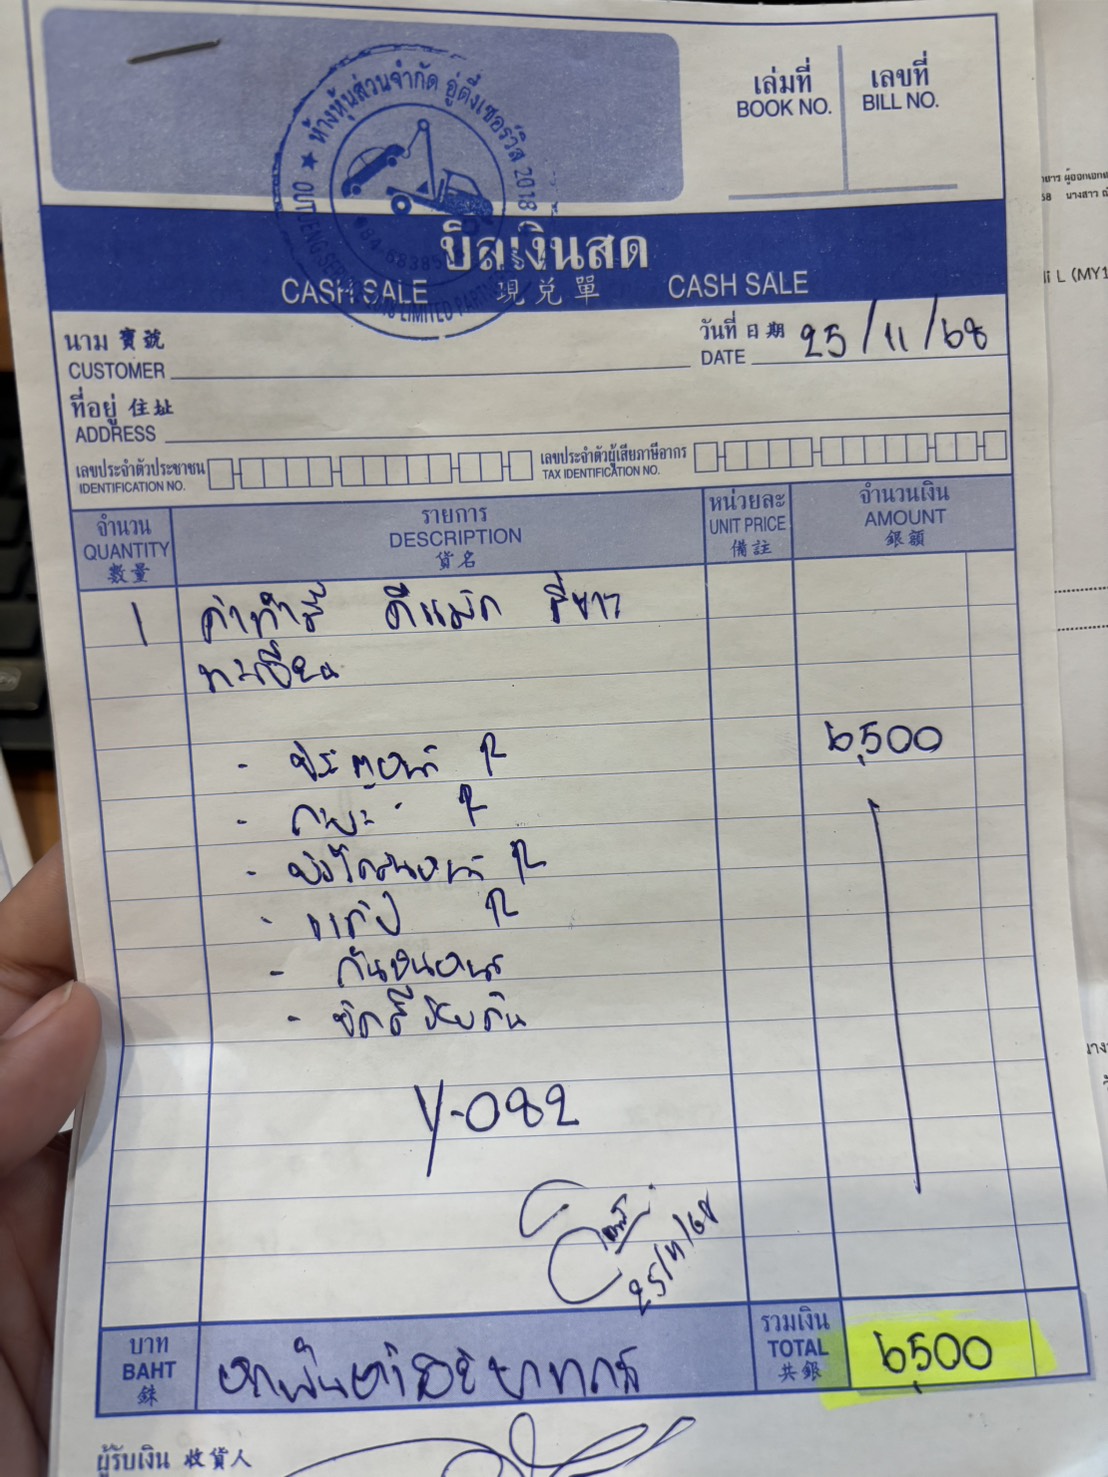 ห้างหุ้นส่วนจำกัด อู่ตึ๋งเซอร์วิส 2018
เล่มที่
BOOK NO.
เลขที่
BILL NO.
บิลเงินสด
CASH SALE 現兌單 CASH SALE
นาม 寶號
CUSTOMER
วันที่ 日期
DATE 25/11/68
ที่อยู่ 住址
ADDRESS
เลขประจำตัวประชาชน
IDENTIFICATION NO.
เลขประจำตัวผู้เสียภาษีอากร
TAX IDENTIFICATION NO.
จำนวน
QUANTITY
數量
รายการ
DESCRIPTION
貨名
หน่วยละ
UNIT PRICE
備註
จำนวนเงิน
AMOUNT
銀額
1 ค่าทำสี ดีแม็ก สีขาว
ทะเบียน
- ประตูหน้า R
6,500
- R
- บังโคลนหน้า R
- แก้ป R
- กันชนหน้า
- ขัดสีรอบคัน
Y-082
25/11/68
บาท
BAHT
銖
หกพันห้าร้อยบาทถ้วน
รวมเงิน
TOTAL
共銀
6,500
ผู้รับเงิน 收貨人